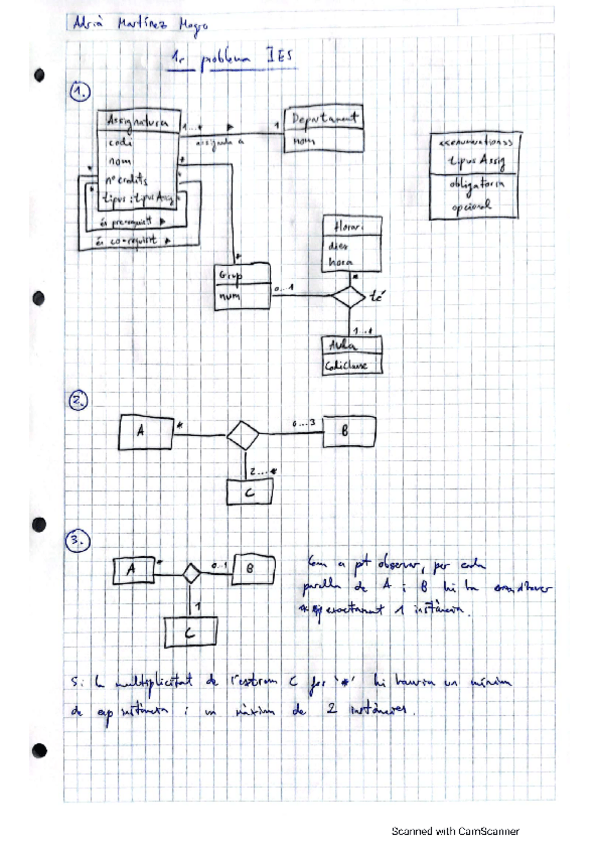 Adrià Martínez Mogro
1r problema IES
1.
Assignatura
codi
nom
nº credits
tipus : tipus Assig
1...*
assignada a
1
Departament
nom
<<enumeration>>
tipus Assig
obligatoria
opcional
*
*
*
*
és prerequisit
és co-requisit
*
Grup
num
0..1
Horari
dies
hora
*
té
1..1
Aula
Codi Classe
2.
A
*
0...3
B
2...*
C
3.
A
*
0..1
B
1
C
Com a pt observar, per cada
parella de A i B hi ha
exactament 1 instància.
Si la multiplicitat de l'extrem C fos '*' hi hauria un mínim
de cap instància i un màxim de 2 instàncies.
Scanned with CamScanner